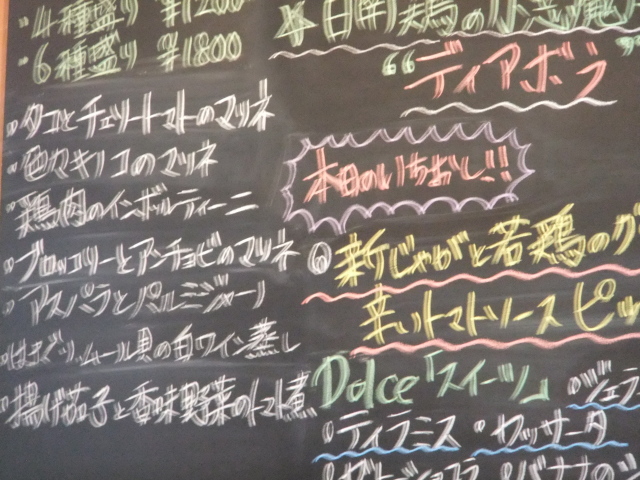 ・4種盛り ¥1200
・6種盛り ¥1800
・タコとチェリートマトのマリネ
・色々キノコのマリネ
・鶏肉のインボルティーニ
・ブロッコリーとアンチョビのマリネ
・アスパラとパルミジャーノ
・はまぐり、ムール貝の白ワイン蒸し
・揚げ茄子と香味野菜のトマト煮
鶏の
“ディアボラ”
本日のいちおし!!
◎新じゃがと若鶏のグ
辛いトマトソース ピッ
Dolce「スイーツ」 ・ジェラ
・ティラミス ・カッサータ
・ガトーショコラ ・バナナの